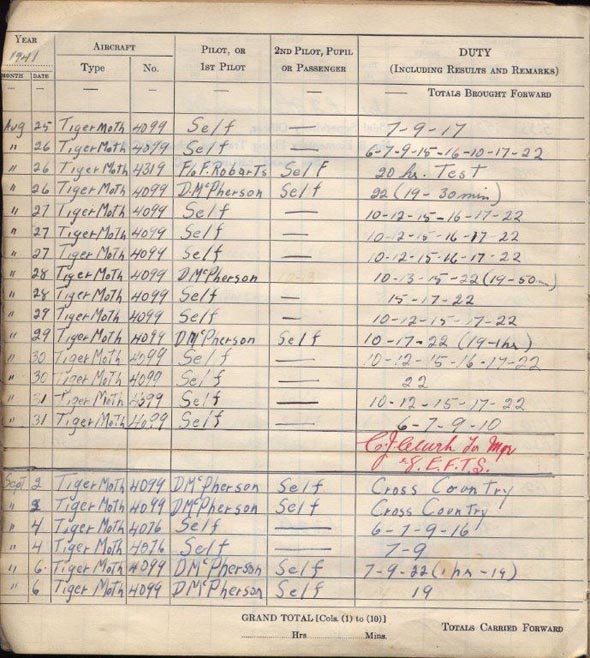 YEAR AIRCRAFT PILOT, OR 2ND PILOT, PUPIL DUTY
1941 Type No. 1ST PILOT OR PASSENGER (INCLUDING RESULTS AND REMARKS)
MONTH DATE
— — — — — — — TOTALS BROUGHT FORWARD
Aug 25 Tiger Moth 4099 Self — 7-9-17
" 26 Tiger Moth 4099 Self — 6-7-9-15-16-10-17-22
" 26 Tiger Moth 4319 F/o F. Robarts Self 20 hr. Test
" 26 Tiger Moth 4099 D McPherson Self 22 (19-30 min)
" 27 Tiger Moth 4099 Self — 10-12-15-16-17-22
" 27 Tiger Moth 4099 Self — 10-12-15-16-17-22
" 27 Tiger Moth 4099 Self — 10-12-15-16-17-22
" 28 Tiger Moth 4099 D McPherson 10-13-15-22 (19-50m)
" 28 Tiger Moth 4099 Self — 15-17-22
" 29 Tiger Moth 4099 Self — 10-12-15-17-22
" 29 Tiger Moth 4099 D McPherson Self 10-17-22 (19-1hr)
" 30 Tiger Moth 4099 Self — 10-12-15-16-17-22
" 30 Tiger Moth 4099 Self — 22
" 31 Tiger Moth 4099 Self — 10-12-15-17-22
" 31 Tiger Moth 4099 Self — 6-7-9-10
E.F.T.S.
Sept 2 Tiger Moth 4099 D McPherson Self Cross Country
" Tiger Moth 4099 D McPherson Self Cross Country
" 4 Tiger Moth 4076 Self — 6-7-9-16
" 4 Tiger Moth 4076 Self — 7-9
" 6 Tiger Moth 4099 D McPherson Self 7-9-22 (1hr-19)
" 6 Tiger Moth 4099 D McPherson Self 19
GRAND TOTAL [Cols. (1) to (10)]
Hrs. Mins. TOTALS CARRIED FORWARD